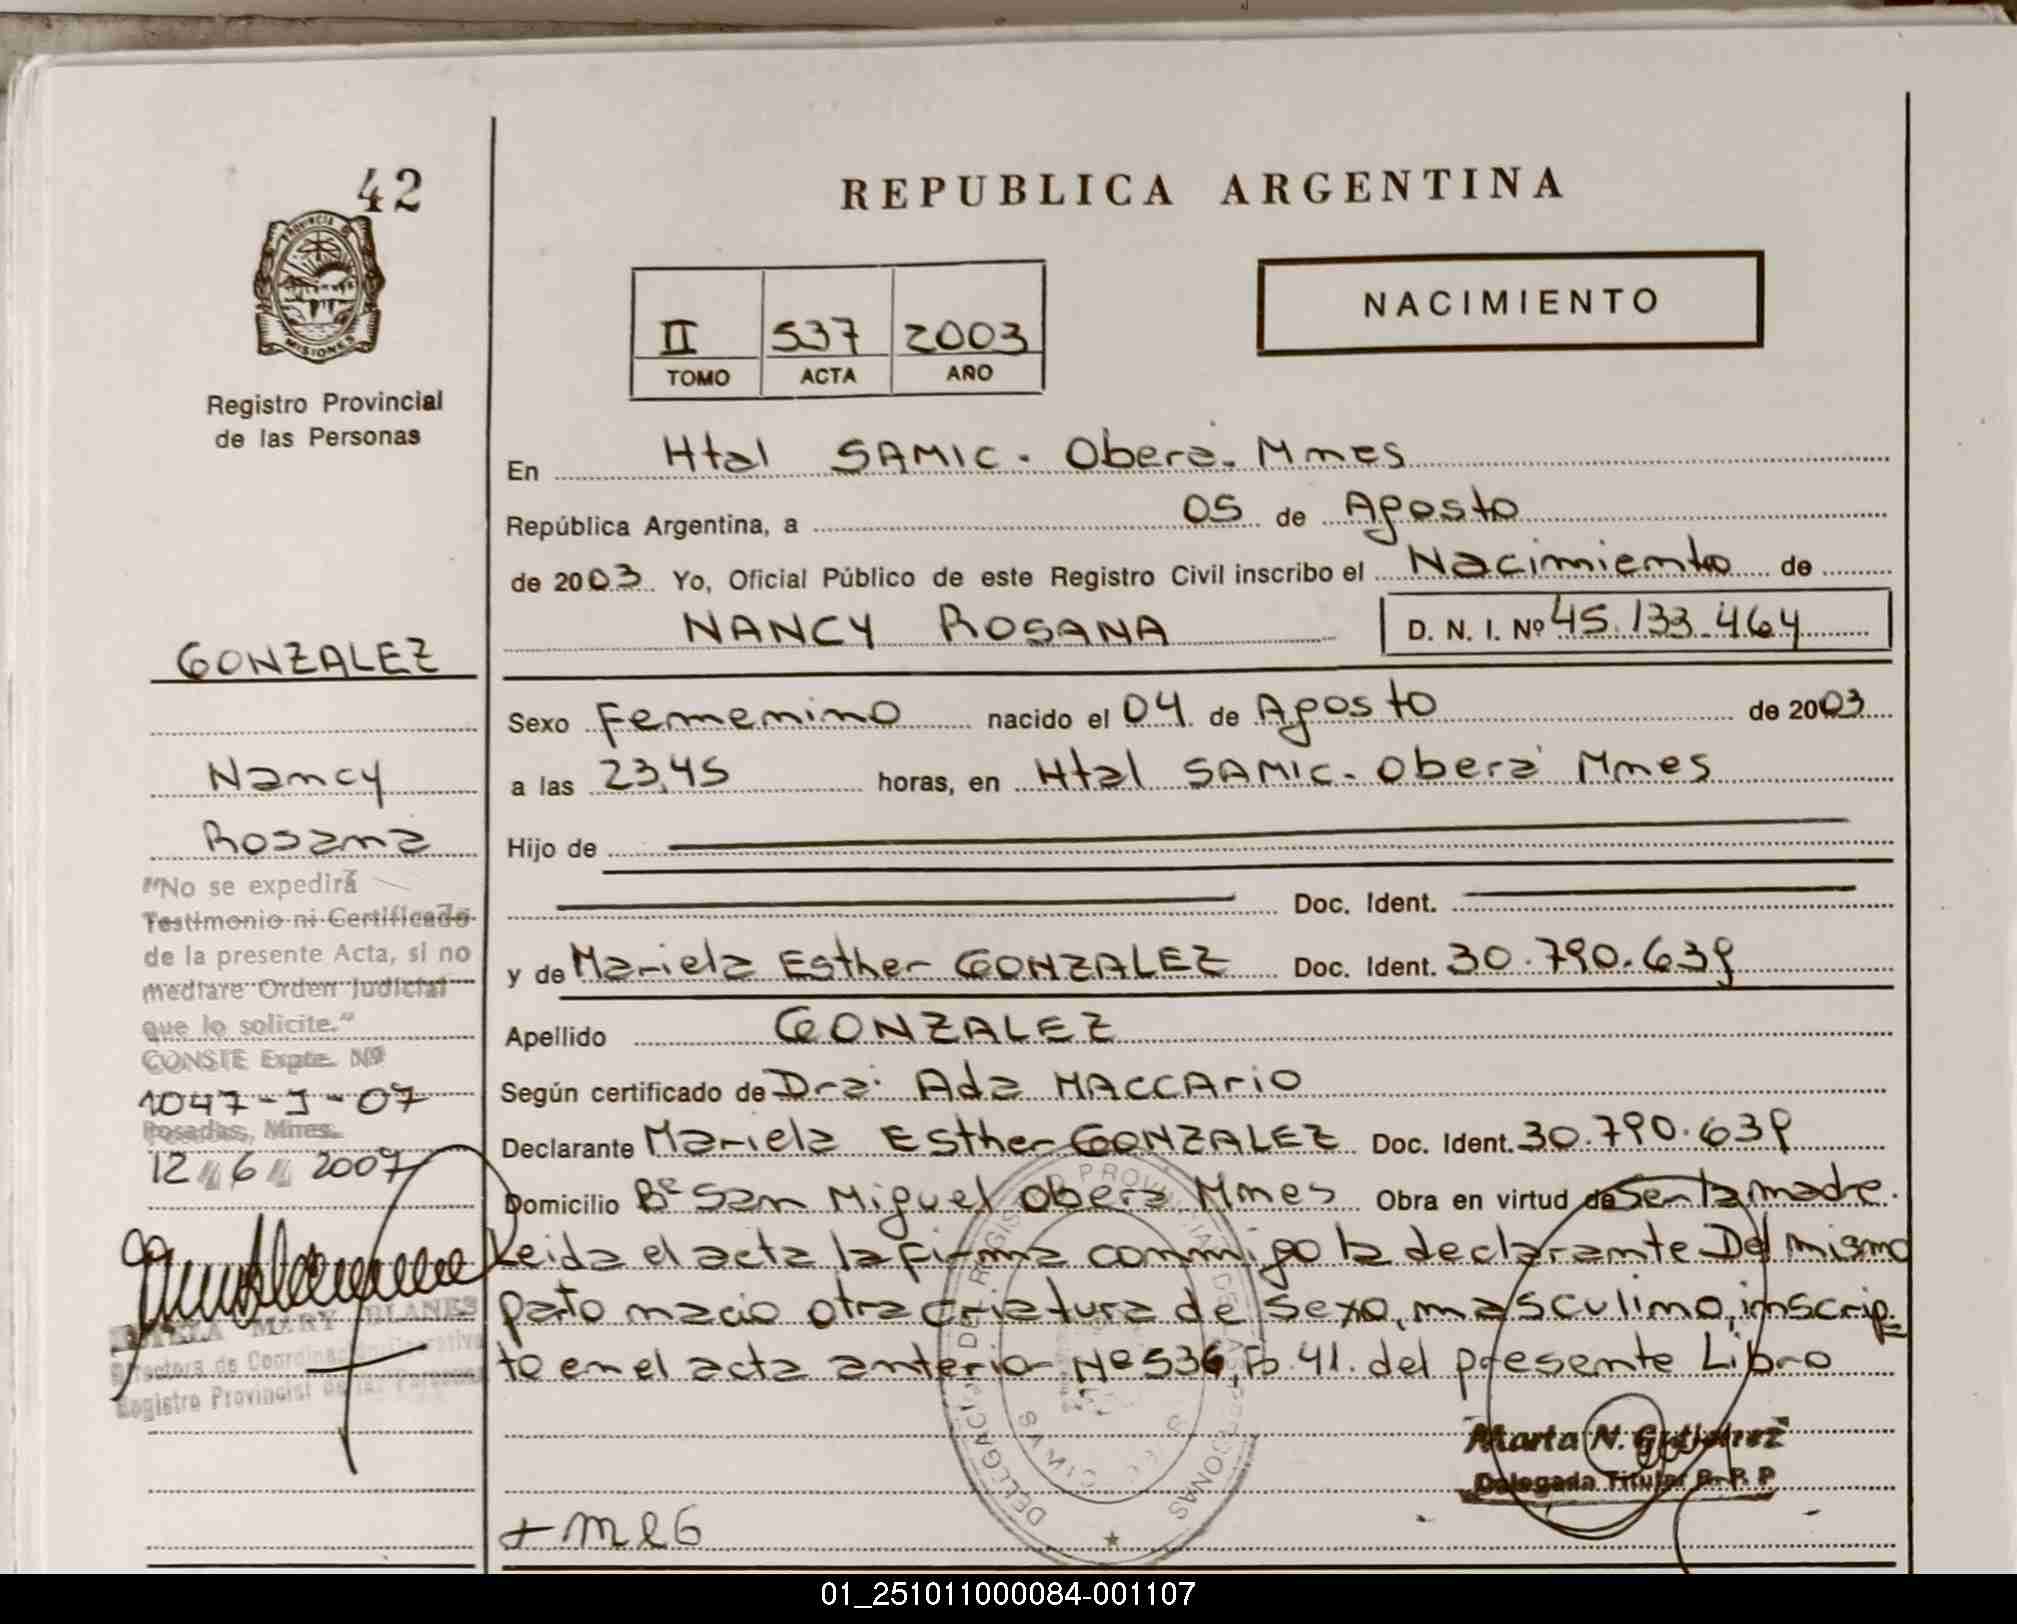 42
REPUBLICA ARGENTINA
PROVINCIA DE
MISIONES
Registro Provincial
de las Personas
II 537 2003
TOMO ACTA AÑO
NACIMIENTO
En Htal SAMIC. Oberá. Mnes
República Argentina, a 05 de Agosto
de 2003 Yo, Oficial Público de este Registro Civil inscribo el Nacimiento de
NANCY ROSANA D. N. I. Nº 45.133.464
GONZALEZ
Nancy
Rosana
"No se expedirá
Testimonio ni Certificado
de la presente Acta, si no
mediare Orden Judicial
que lo solicite."
CONSTE Expte. Nº
1047-J-07
Posadas, Mnes.
12 6 2007
MARY BLANES
Directora de Coordinación
Registro Provincial de las Personas
Sexo Femenino nacido el 04 de Agosto de 2003
a las 23,45 horas, en Htal SAMIC. Oberá Mnes
Hijo de
Doc. Ident.
y de Mariela Esther GONZALEZ Doc. Ident. 30.790.639
Apellido GONZALEZ
Según certificado de Dra. Ada MACCARIO
Declarante Mariela Esther GONZALEZ Doc. Ident. 30.790.639
Domicilio Bº San Miguel Oberá Mnes Obra en virtud de Ser la madre.
Leida el acta la firma conmigo la declarante Del mismo
parto nacio otra criatura de sexo, masculino, inscrip-
to en el acta anterior Nº 536, Fº 41. del presente Libro
DELEGACION DEL REGISTRO PROVINCIAL DE LAS PERSONAS
Marta N. Gutierrez
Delegada Titular R. P. P
+ M E G
01_251011000084-001107